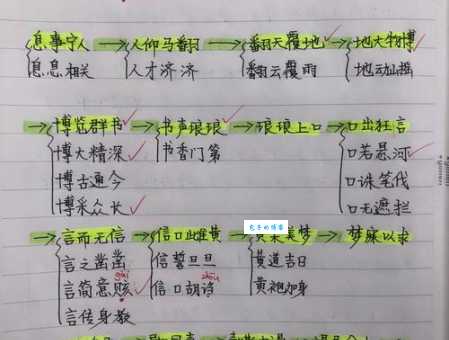 息事宁人 → 人仰马翻 → 翻天覆地 → 地大物博
息息相关 人才济济 翻云覆雨 地动山摇
→ 博览群书 → 书声琅琅 → 琅琅上口 → 口出狂言
博大精深 书香门第 口若悬河
博古通今 口诛笔伐
博采众长 口无遮拦
→ 言而无信 → 信口雌黄 → 黄粱美梦 → 梦寐以求
言之凿凿 信誓旦旦 黄道吉日
言简意赅 信口胡诌 黄袍加身
言传身教